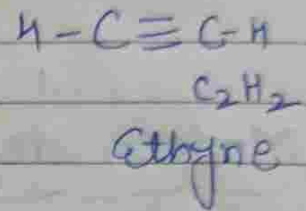 H-C≡C-H
C₂H₂
Ethyne